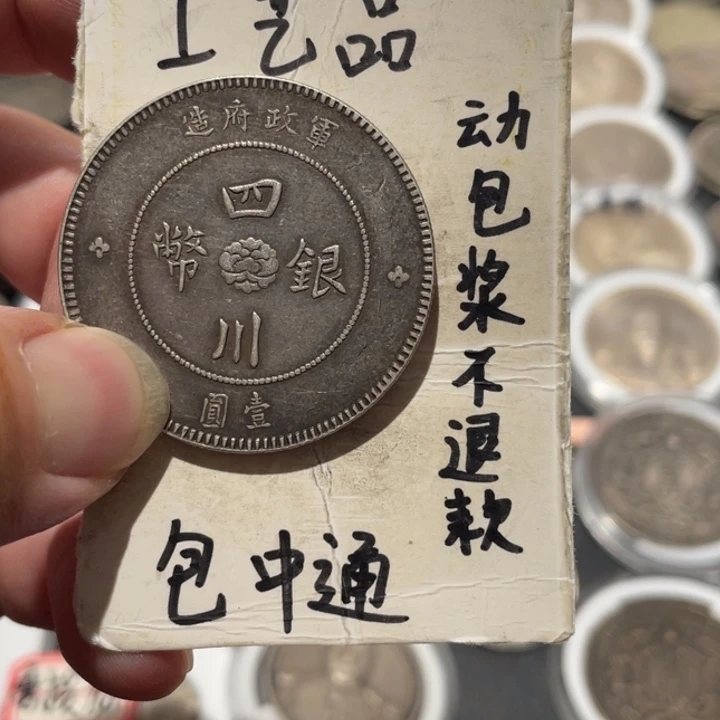 工艺品
动包浆不退款
包中通
軍政府造
四川
銀幣
壹圓